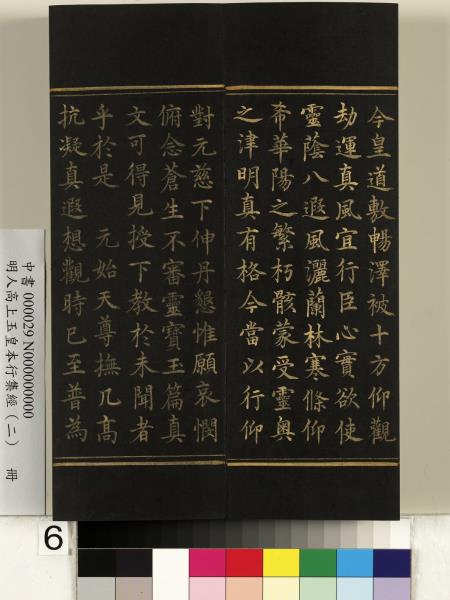 今皇道敷暢澤被十方仰觀
劫運真風宜行臣心實欲使
靈蔭八遐風灑蘭林寒條仰
希華陽之繁朽骸蒙受靈奧
之津明真有格今當以行仰
對元慈下仲丹懇惟願哀憫
俯念蒼生不審靈寶玉篇真
文可得見授下教於未聞者
乎於是 元始天尊撫几高
抗凝真遐想觀時已至普為
中書 000029 N000000000
明人高上玉皇本行集經(二) 冊
6